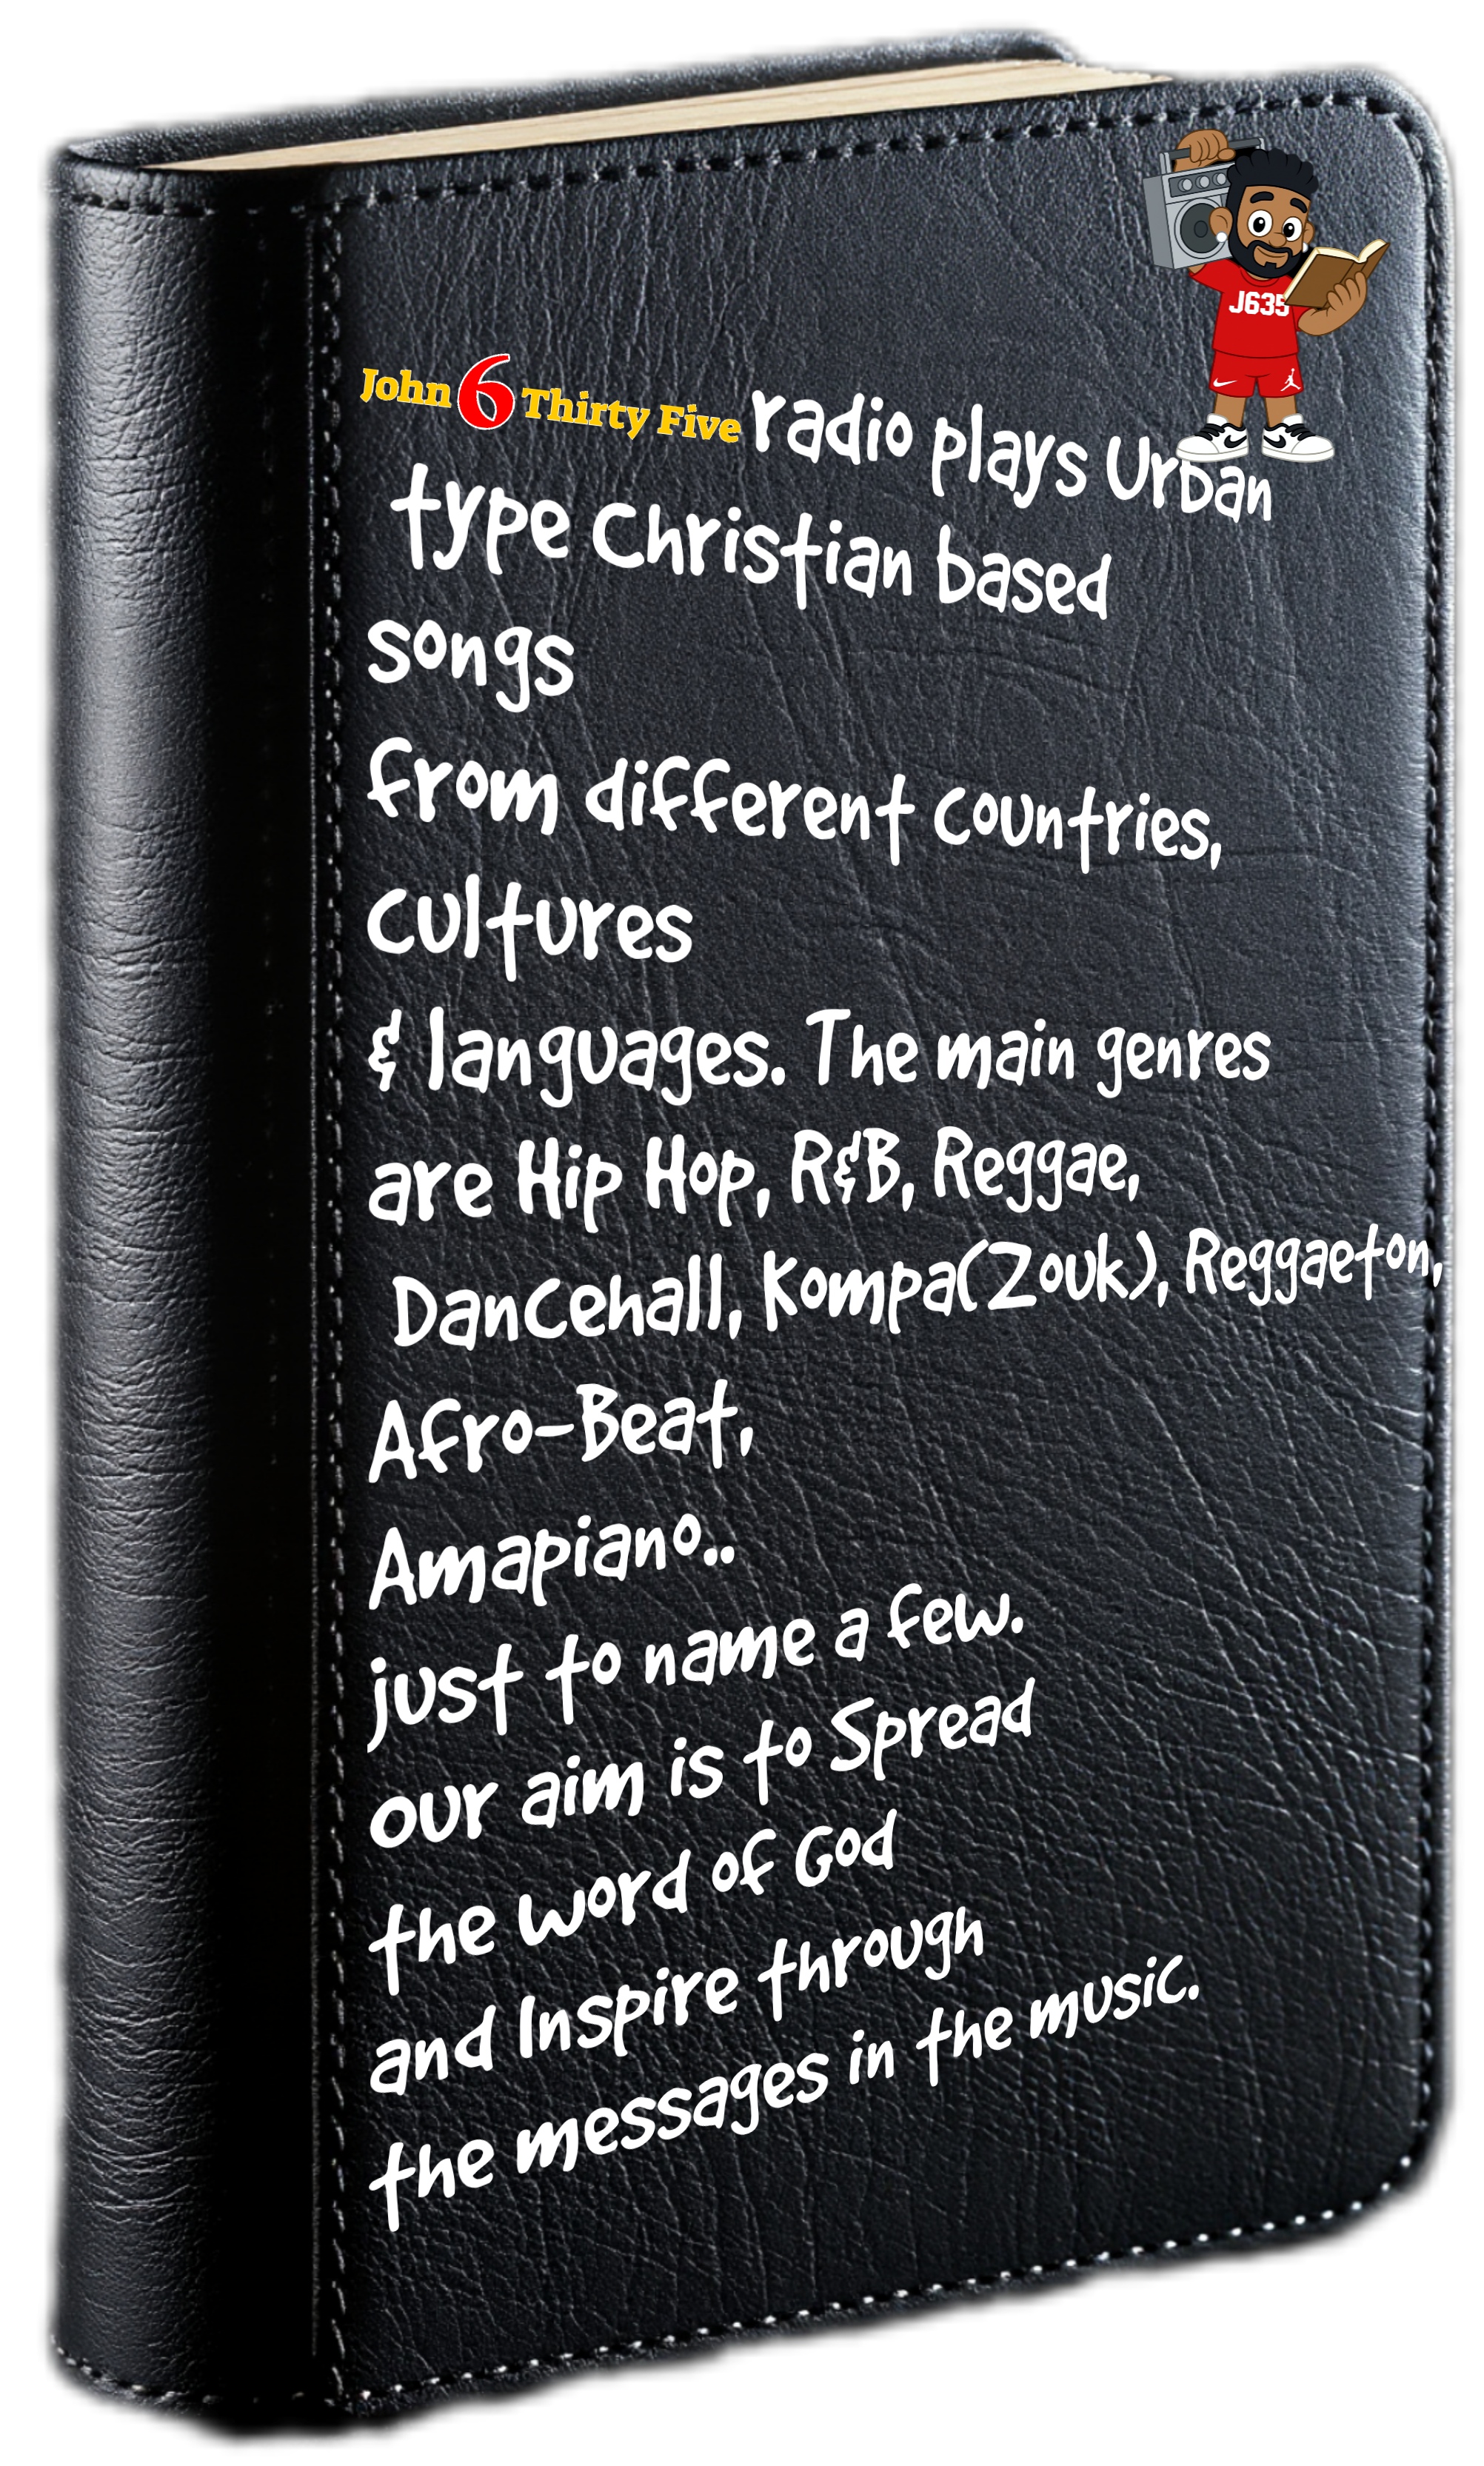 J635
John 6 Thirty Five radio plays Urban
type Christian based
songs
from different countries,
cultures
& languages. The main genres
are Hip Hop, R&B, Reggae,
Dancehall, Kompa(Zouk), Reggaeton,
Afro-Beat,
Amapiano..
just to name a few.
our aim is to Spread
the word of God
and Inspire through
the messages in the music.